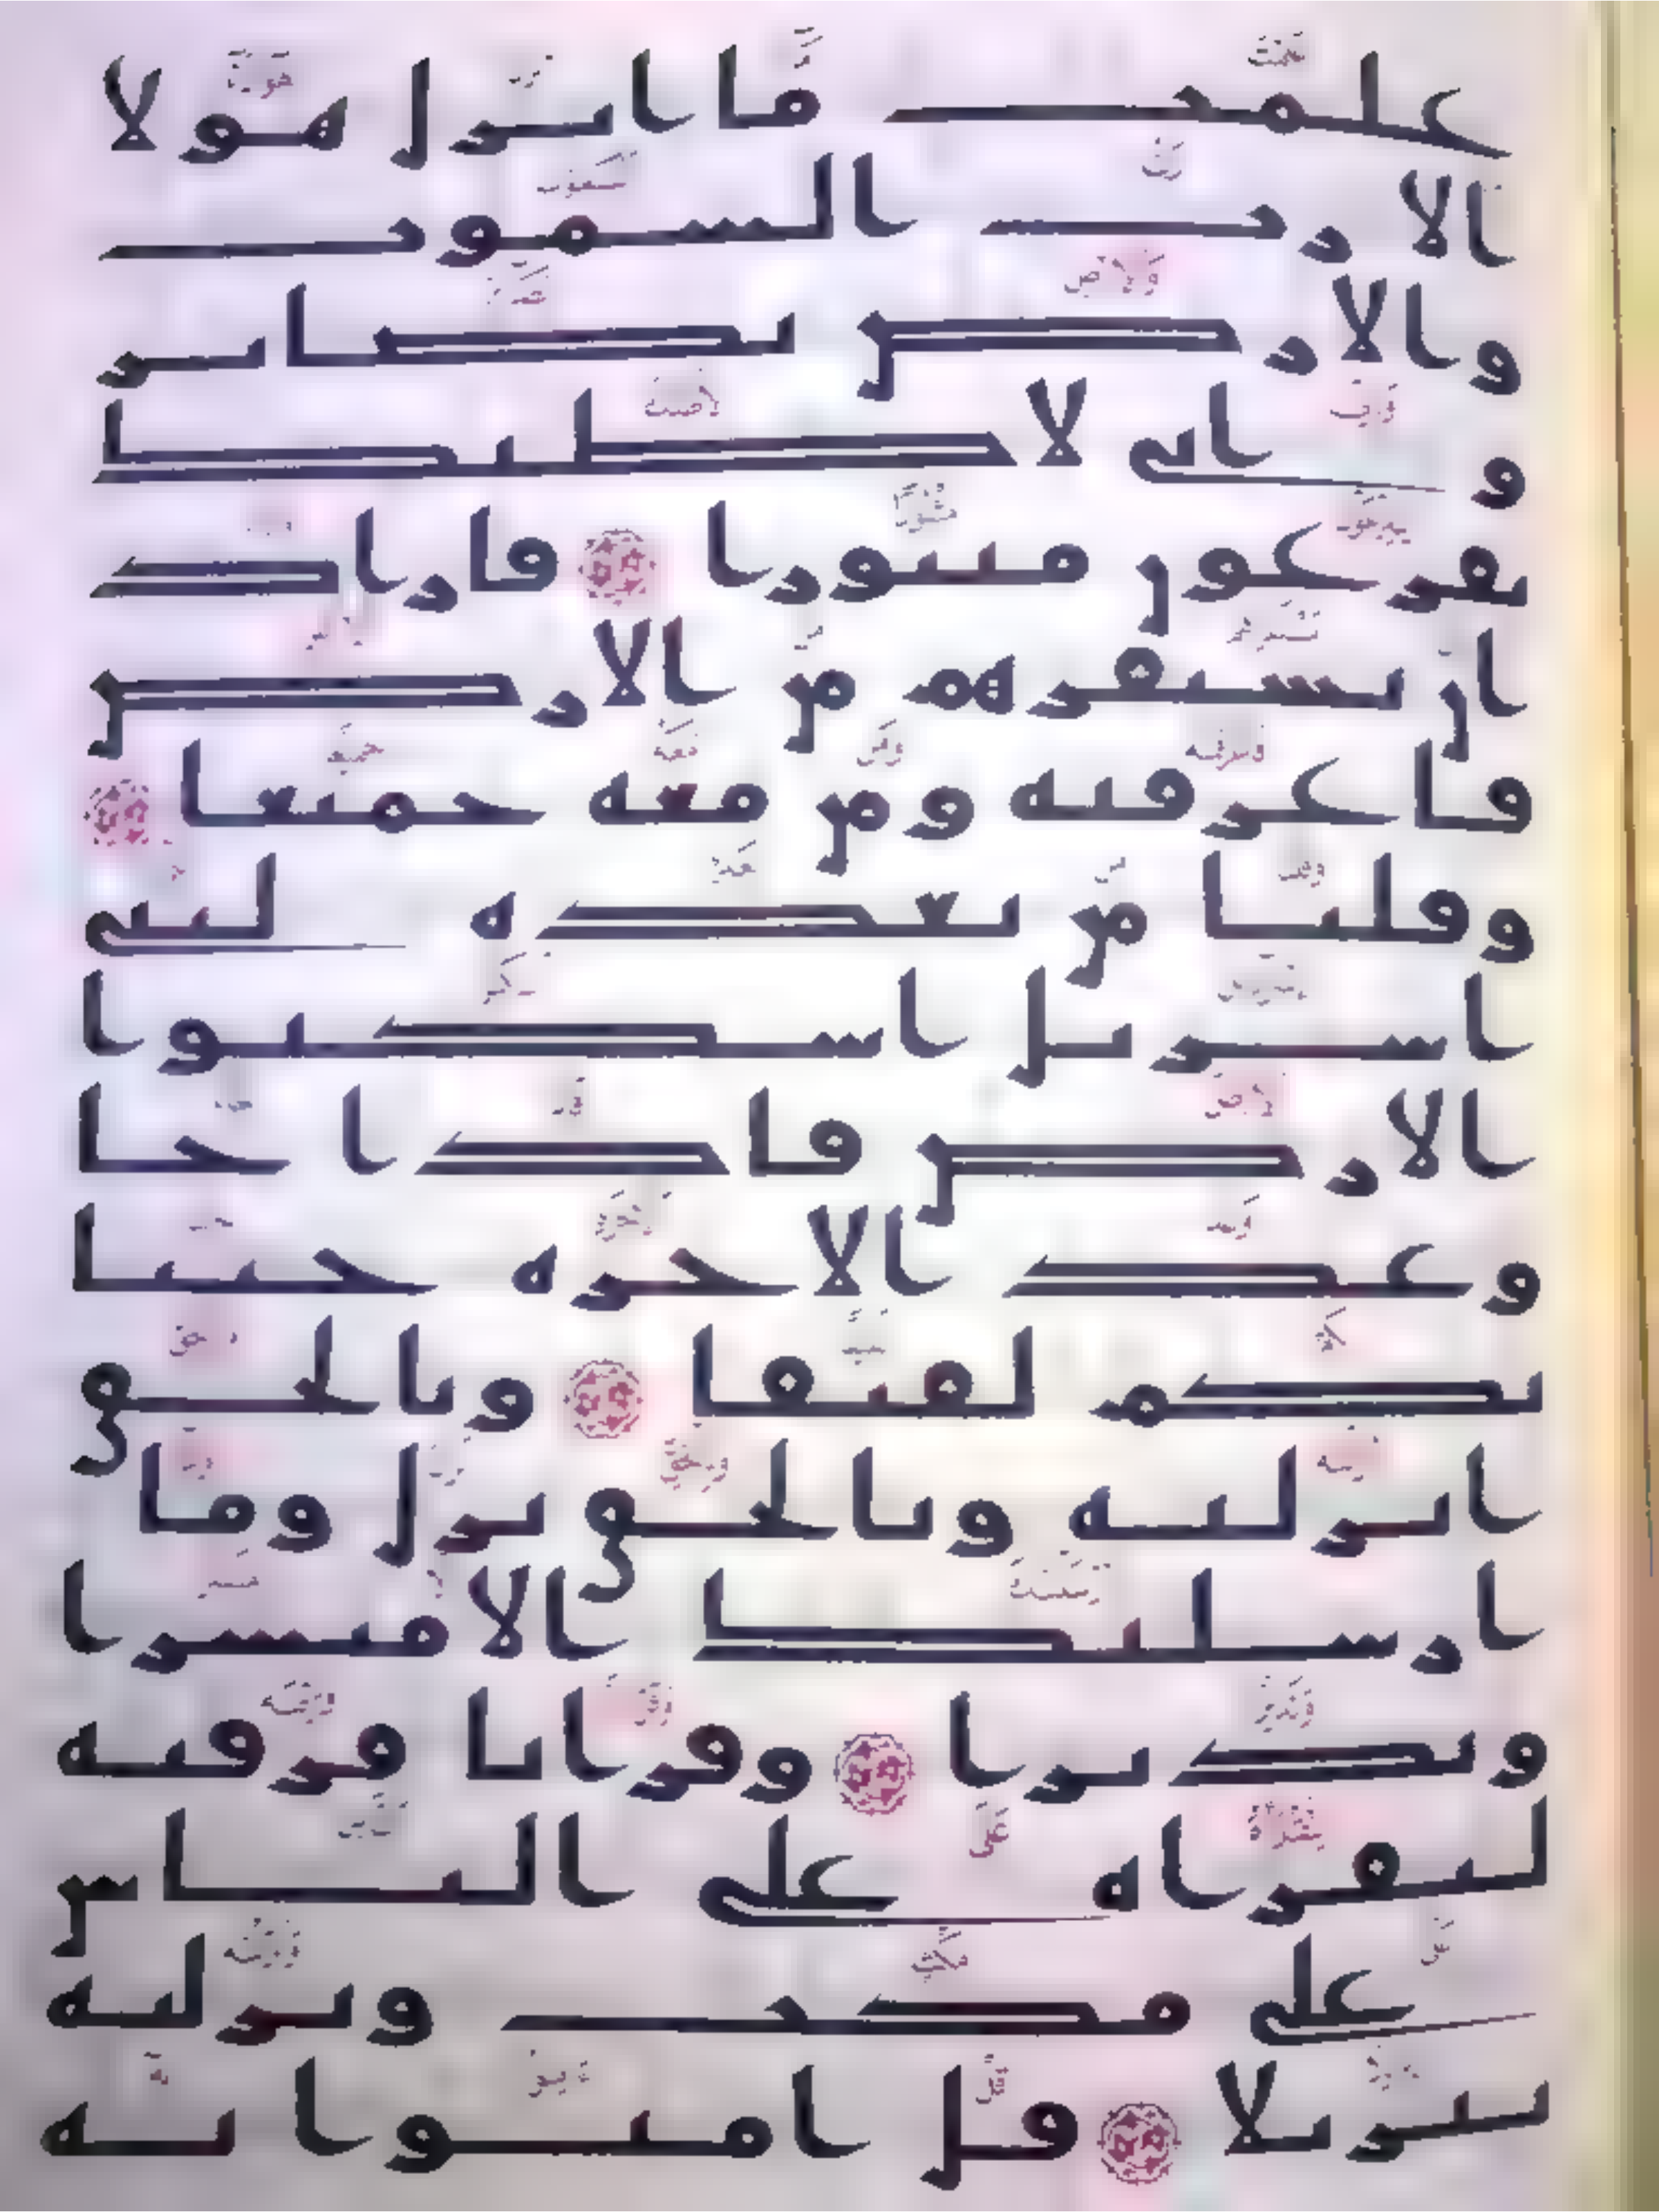 علمت ما انزل هولا
الا رب السموت
والارض بصاير
واني لاظنك
يفرعون مثبورا فاراد
ان يستفزهم من الارض
فاغرقنه ومن معه جميعا
وقلنا من بعده لبني
اسريل اسكنوا
الارض فاذا جا
وعد الاخرة جينا
بكم لفيفا وبالحق
انزلنه وبالحق نزل وما
ارسلنك الا مبشرا
ونذيرا وقرانا فرقنه
لتقراه على الناس
على مكث ونزلنه
تنزيلا قل امنوا به